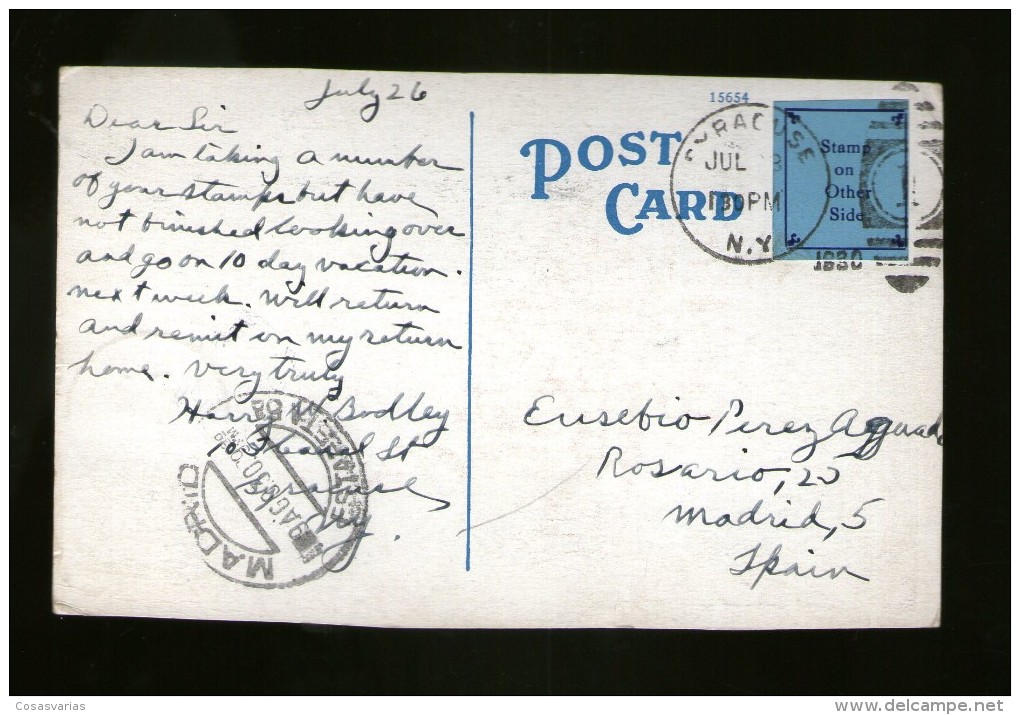 July 26
Dear Sir
I am taking a number
of your stamps but have
not finished looking over
and go on 10 day vacation
next week. Will return
and remit on my return
home. Very truly
Harry W. Bodley
St
15654
POST
CARD
SYRACUSE
JUL 28
1 30 PM
N.Y.
1930
Stamp
on
Other
Side
Eusebio Perez Aguado
Rosario, 20
Madrid, 5
Spain
MADRID
9 AGO 30
Cosasvarias
www.delcampe.net